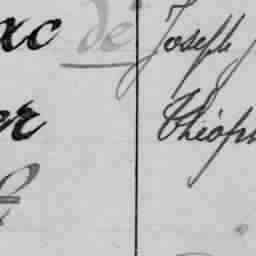 xc de Joseph
er Théoph